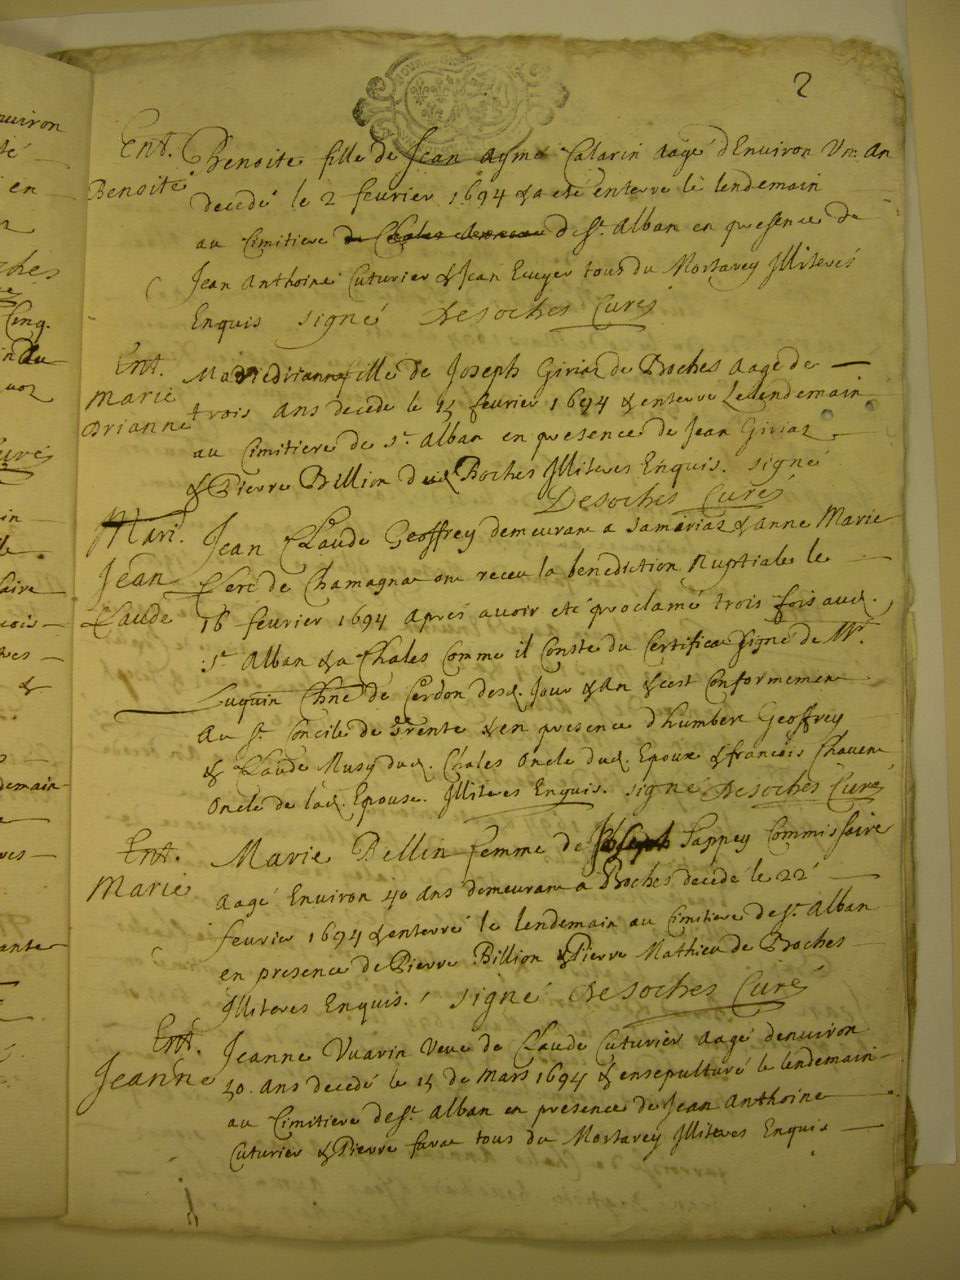 2
Ent.
Benoite
Benoite fille de Jean Aymé Calarin aagé d'Environ Un An
decedé le 2 fevrier 1694 & a eté enterré le lendemain
au Cimitiere de St. Alban en presence de
Jean Anthoine Cuturier & Jean Ecuyer tous du Mortarey Illiterés
Enquis signé Desoches Curé
Ent.
Marie
Drianne
Marie drianne fille de Joseph Giriaz de Boches Aagé de
trois ans decedé le 15 fevrier 1694 & enterré Le lendemain
au Cimitiere de St. Alban en presence de Jean Giriaz
& Pierre Billion dud. Boches Illiterés Enquis. signé
Desoches Curé
Mari.
Jean
Claude
Jean Claude Geoffrey demeurant a Samériaz & anne Marie
Clerc de Chamagnat ont receu la benediction Nuptiale le
16 fevrier 1694 Aprés avoir eté proclamé trois fois aud.
St. Alban & a Chales Comme il Conste du Certificat signé de Mr.
Luquin Chne de Cerdon desd. Jour & An & c'est Conformement
Au St. Concile de Trente & en presence d'humbert Geoffrey
& Claude Musy dud. Chales Oncle dud. Epoux & françois Chavent
Oncle de lad. Epouse. Illiterés Enquis. signé Desoches Curé
Ent.
Marie
Marie Bellin femme de Joseph Sappey Commissaire
aagé Environ 40 ans demeurant a Boches decedé le 22
fevrier 1694 & enterré le lendemain au Cimitiere de St. Alban
en presence de Pierre Billion & Pierre Mathieu de Boches
Illiterés Enquis. signé Desoches Curé
Ent.
Jeanne
Jeanne Vuarin veve de Claude Cuturier Aagé denviron
50. ans decedé le 15 de Mars 1694 & ensepulturé le lendemain
au Cimitiere de St. Alban en presence de Jean Anthoine
Cuturier & Pierre favre tous du Mortarey Illiterés Enquis